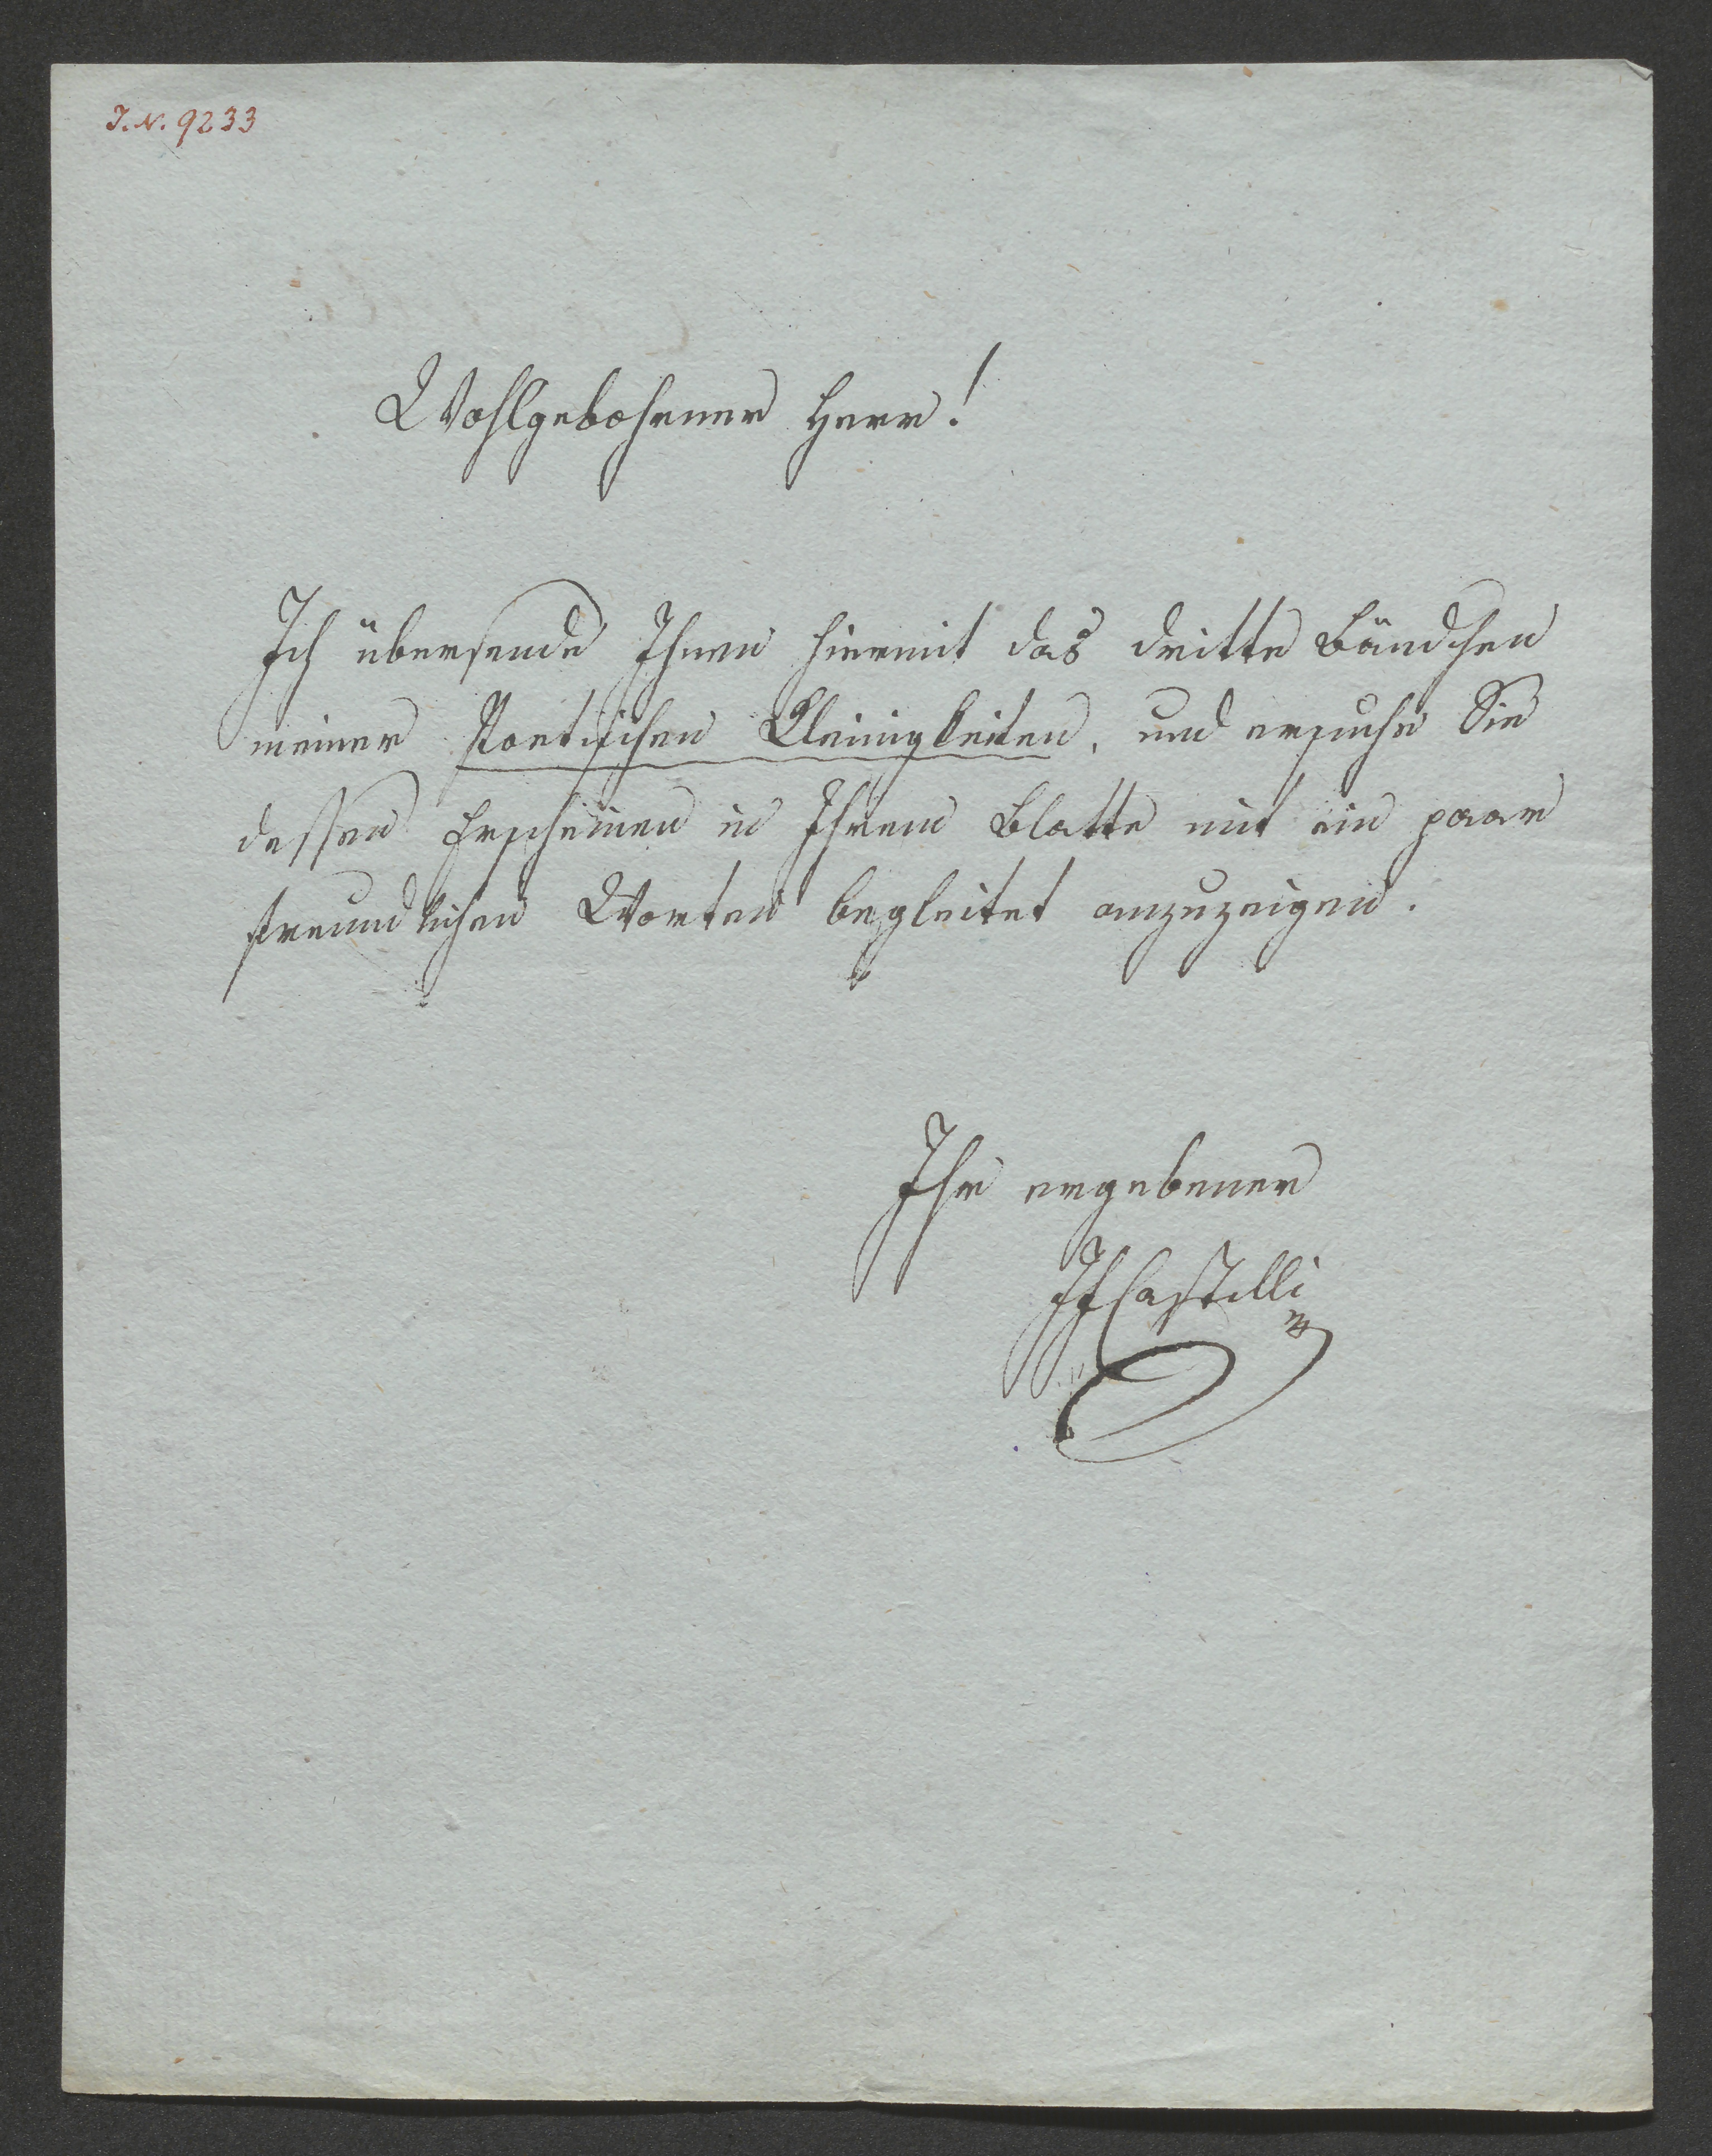 I.N. 9233
Wohlgebohrner Herr!
Ich übersende Ihnen hiermit das dritte Bändchen
meiner Poetischen Kleinigkeiten, und ersuche Sie
dessen Erscheinen in Ihrem Blatte mit ein paar
freundlichen Worten begleitet anzuzeigen.
Ihr ergebener
IFCastelli